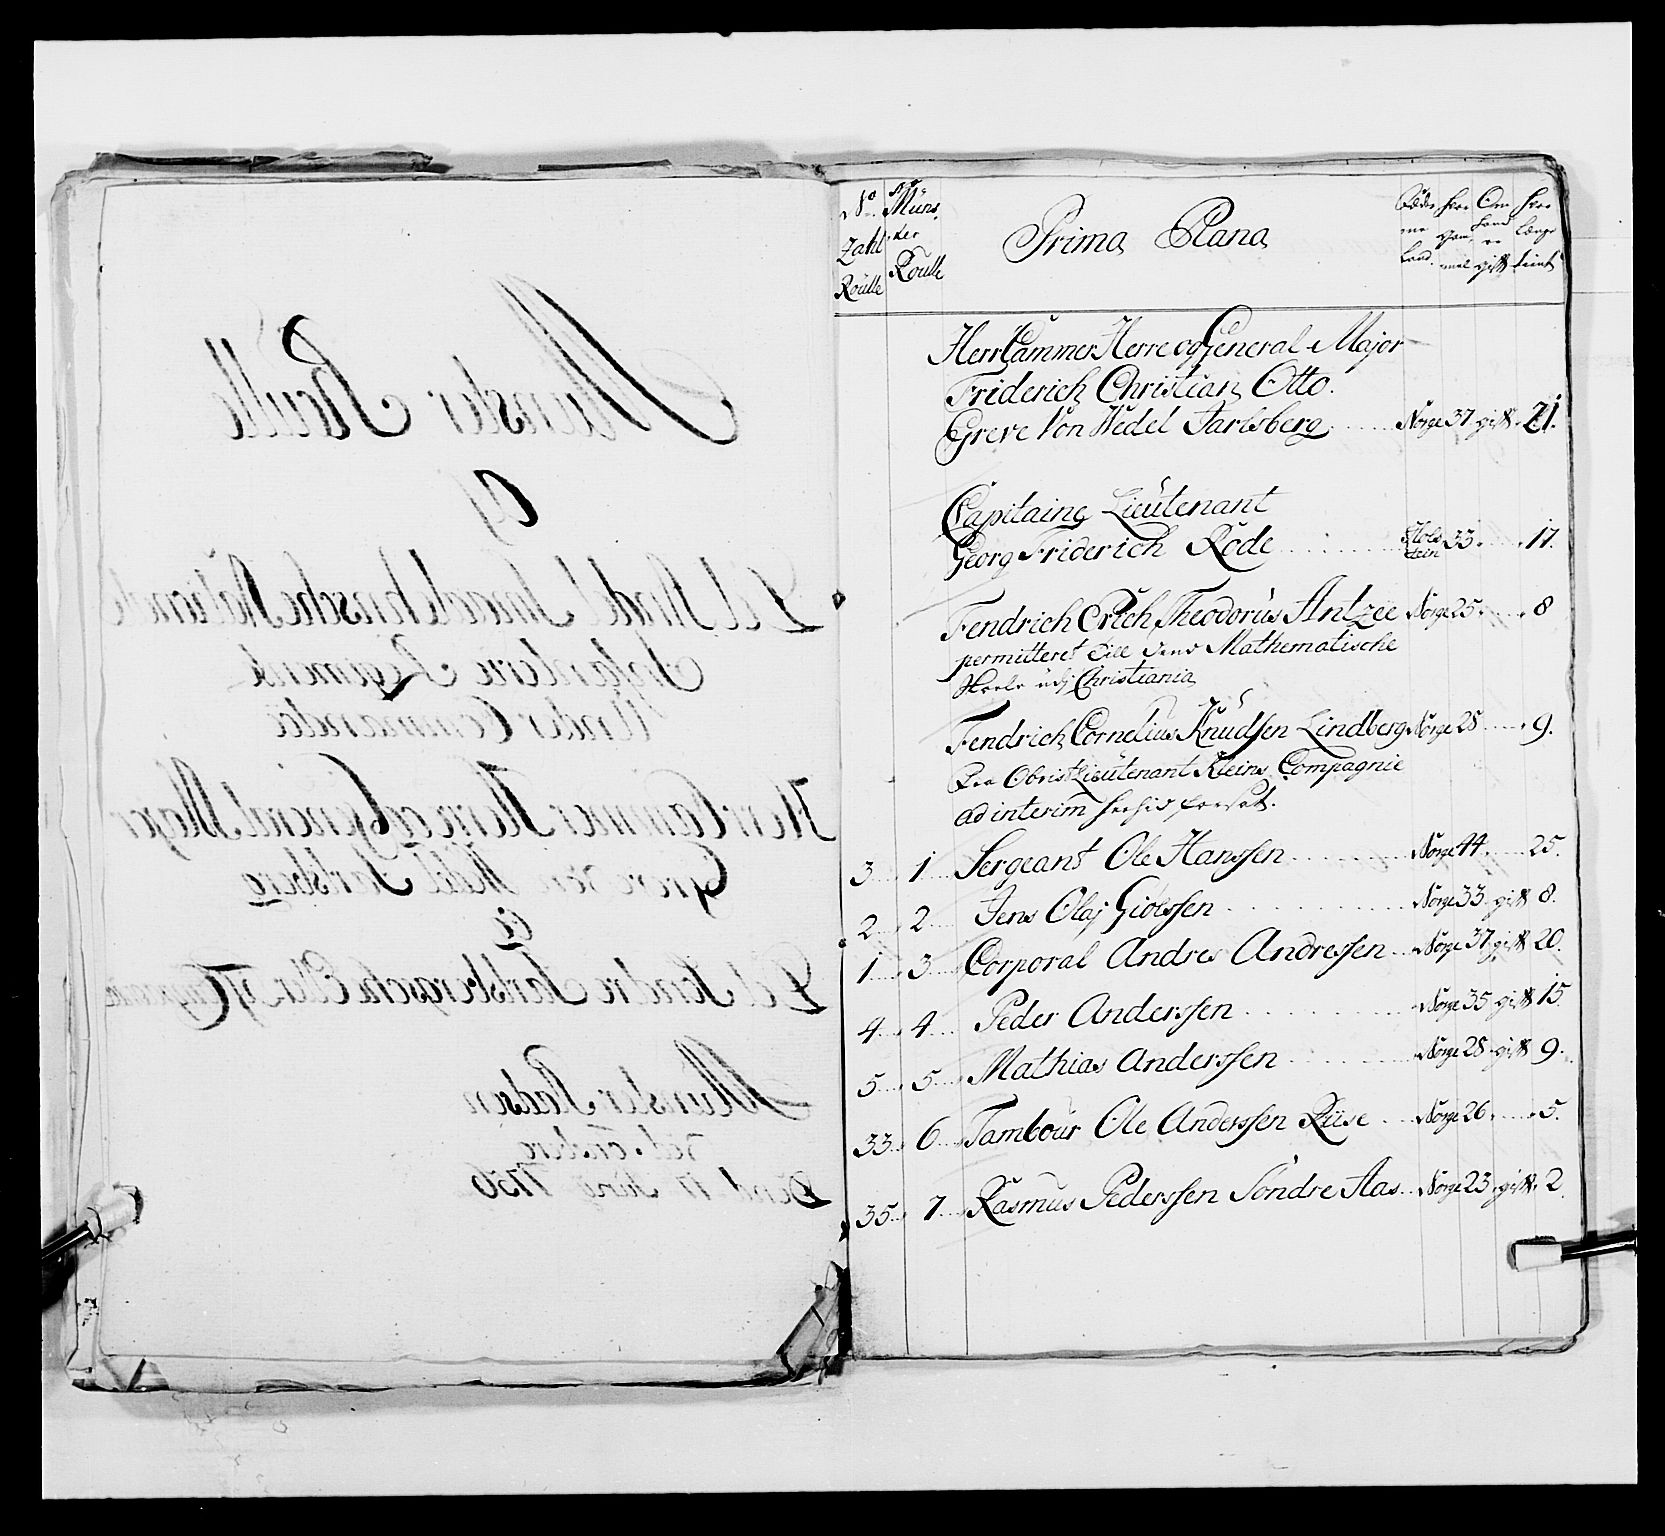 Munster Roulle
af
Det Andet Smaalehnsche Nationale
Infanterie Regiment
Under Commando
Herr Cammer Herre og General Major
Greve von Wedel Jarlsberg
à
Det Søndre Jarlsbergsche Eller Compagnie
Münster Pladsen
ved
Dend 17 Junÿ 1756
No. Zahl Roulle
No. Müns ter Roulle
Prima Plana
Fødene Land.
hvor gam mel
Om hand er gift
hvor længe tient
Herr Cammer Herre og General Major
Friderich Christian Otto.
Greve Von Wedel Jarlsberg Norge 37 gift 21.
Capitaine Lieutenant
Georg Friderich Rode Hols tein 33 17.
Fendrich Erich Theodorus Antzee Norge 25 8
permitteret till dend Mathematische
Skole udj Christiania
Fendrich Cornelius Knudsen Lindberg Norge 28 9.
Fra Obrist Lieutenant Kleins Compagnie
ad interim herhid forsat.
3 1 Sergeant Ole Hanssen Norge 44 25.
2 2 Jens Olaj Giølssen Norge 33 gift 8.
1 3 Corporal Andres Andressen Norge 37 gift 20.
4 4 Peder Anderssen Norge 35 gift 15.
5 5 Mathias Anderssen Norge 28 gift 9.
33 6 Tambour Ole Anderssen Riise Norge 26 5.
35 7 Rasmus Pederssen Søndre Aas Norge 23 gift 2.